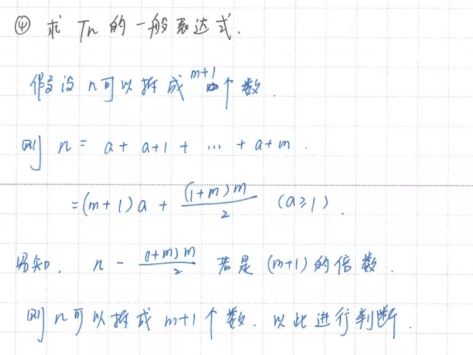 ④ 求 Tn 的一般表达式.
假设 n 可以拆成 m+1 个数.
则 n = a + a+1 + ... + a+m.
=(m+1)a + (1+m)m/2 (a≥1).
易知. n - (1+m)m/2 若是 (m+1) 的倍数.
则 n 可以拆成 m+1 个数. 以此进行判断.